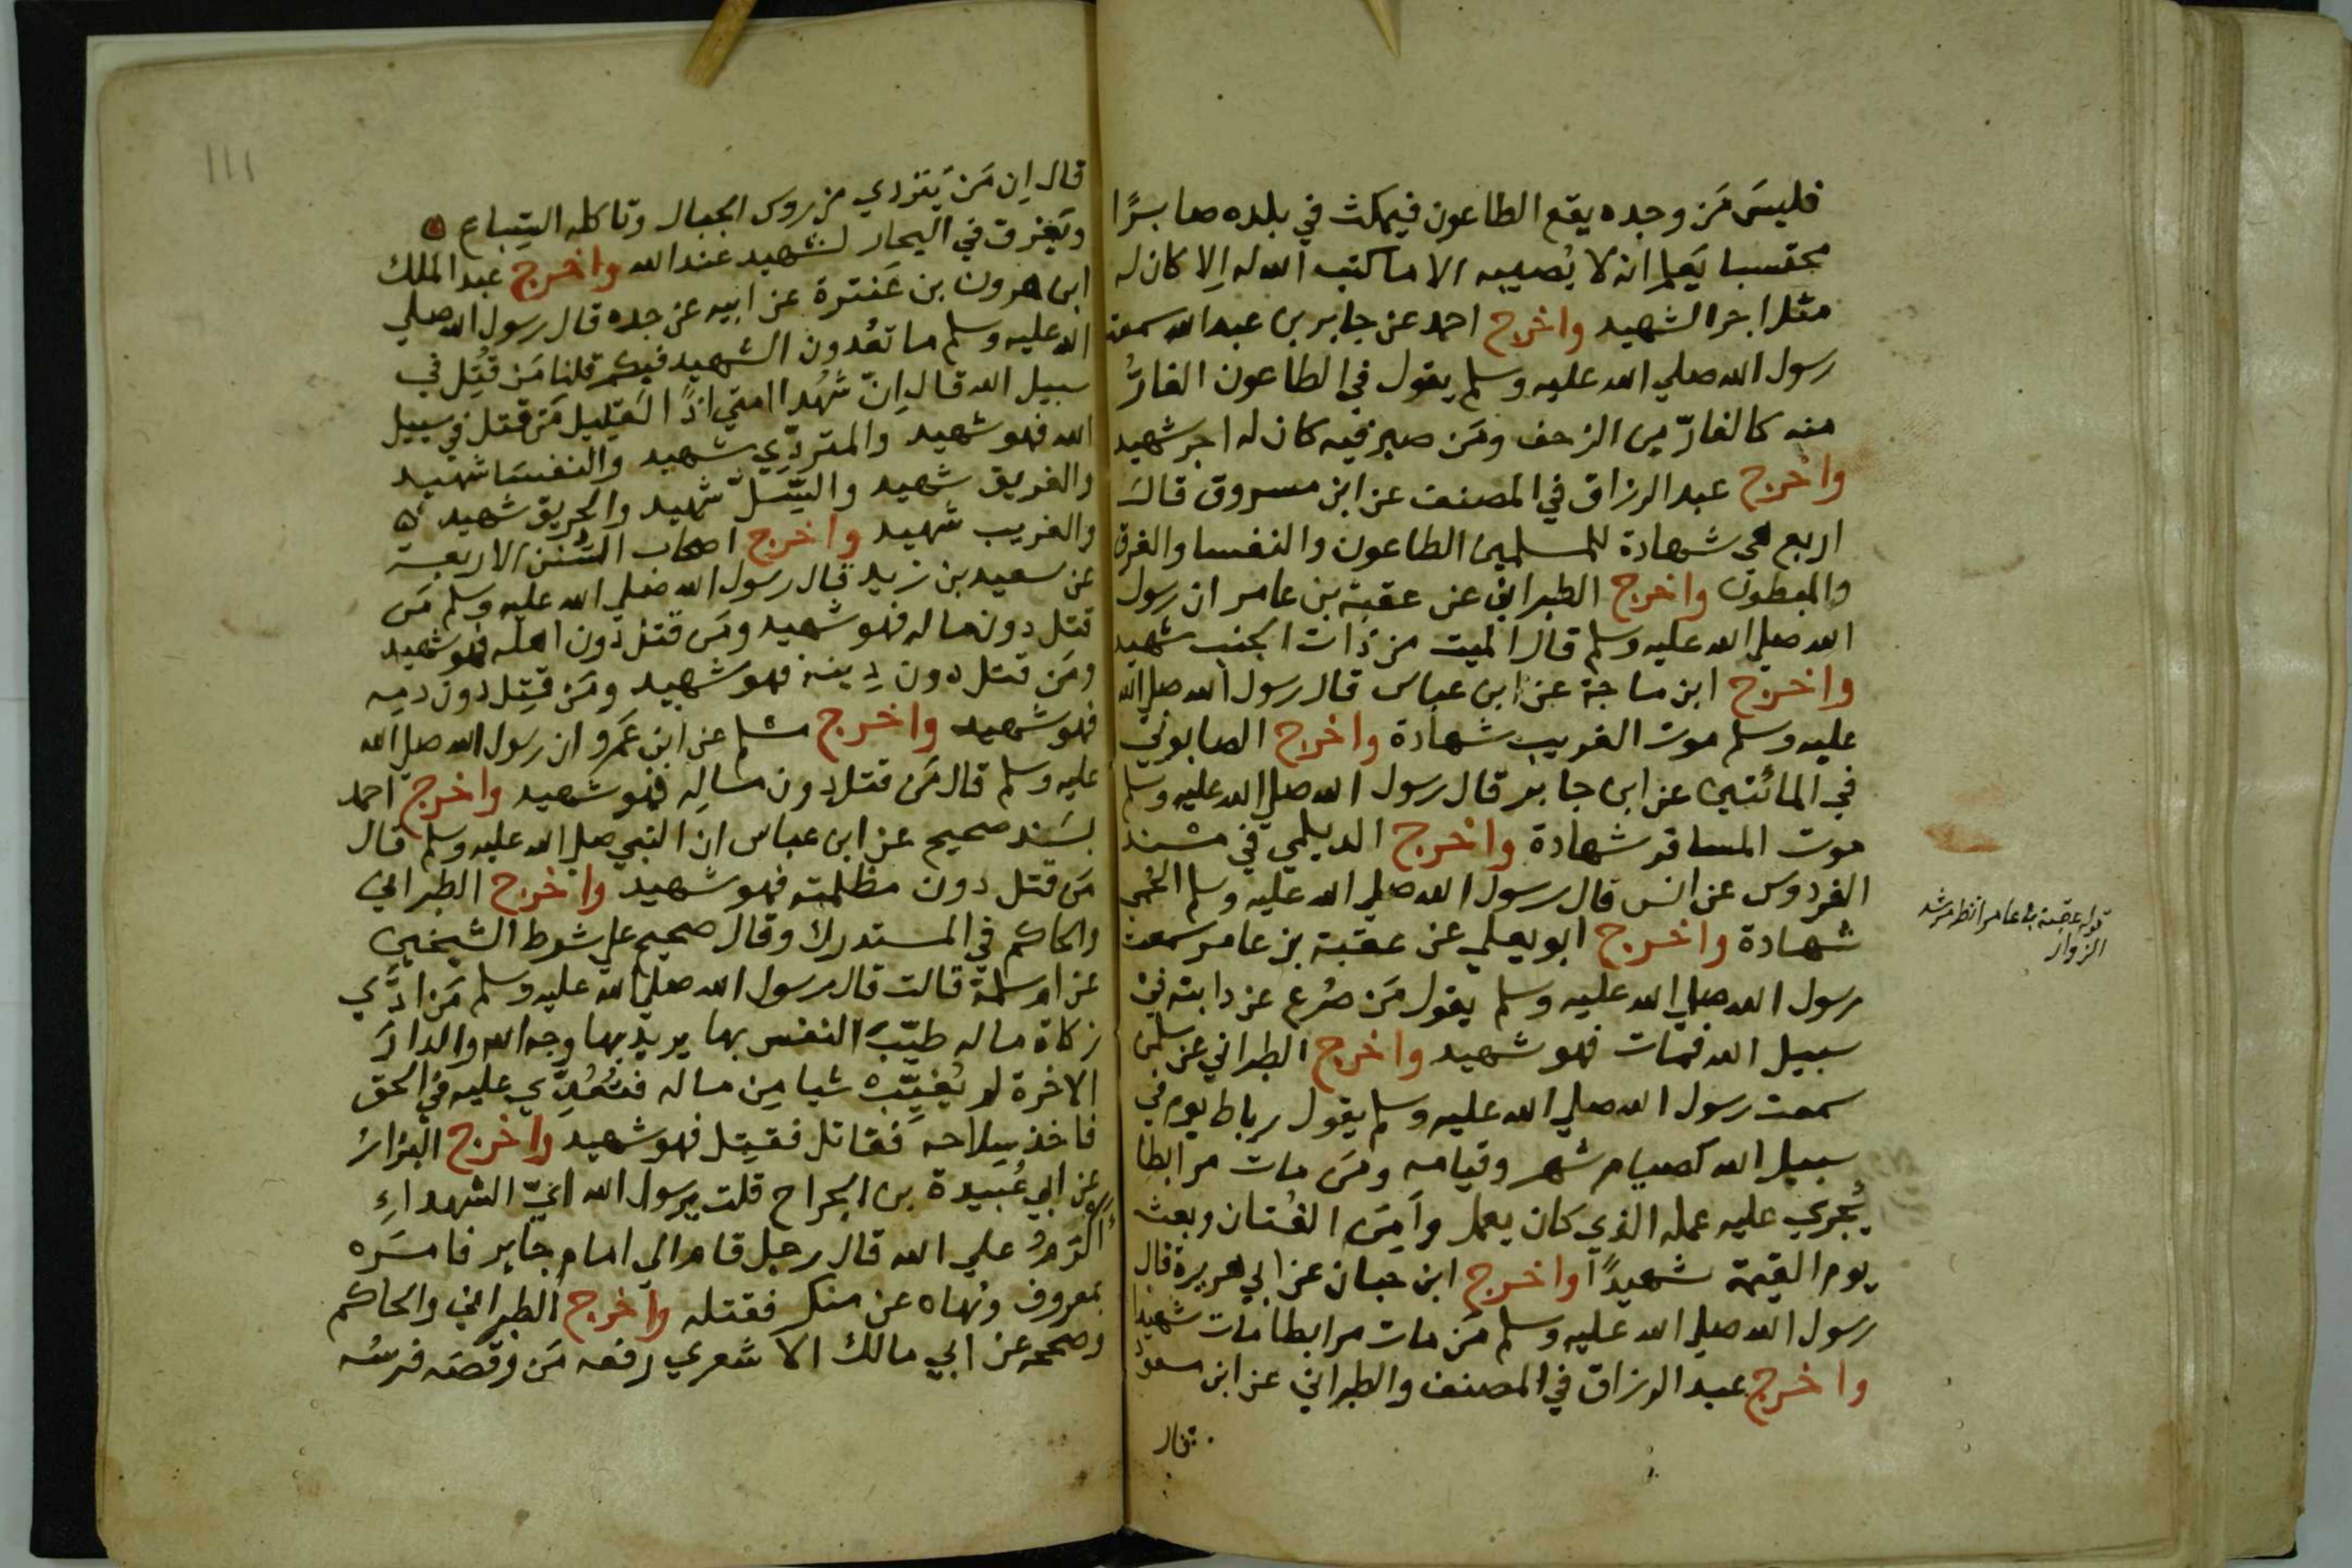 فليسَ مَن وجده يقع الطاعون فيمكث في بلده صابرًا
محتسبا يَعلم انه لا يُصيبه الا ما كتب الله له اِلا كان له
مثل اجر الشهيد واخرج احمد عن جابر بن عبد الله سمعت
رسول الله صلي الله عليه وسلم يقول في الطاعون الفارُّ
منه كالفارّ من الزحف ومَن صبر فيه كان له اجر شهيد
واخرج عبد الرزاق في المصنف عن ابن مسروق قال
اربع هي شهادة للمسلمين الطاعون والنفسا والغرق
والمبطون واخرج الطبراني عن عقبة بن عامر ان رسول
الله صلي الله عليه وسلم قال الميت من ذات الجنب شهيد
واخرج ابن ماجة عن ابن عباس قال رسول الله صلي الله
عليه وسلم موت الغريب شهادة واخرج الصابوني
في المائتين عن ابن جابر قال رسول الله صلي الله عليه وسلم
موت المسافر شهادة واخرج الديلمي في مسند
الفردوس عن انس قال رسول الله صلي الله عليه وسلم الحُمي
شهادة واخرج ابو يعلي عن عقبة بن عامر سمعت
رسول الله صلي الله عليه وسلم يقول مَن صُرع عن دابته في
سبيل الله فمات فهو شهيد واخرج الطبراني عن سلمن
سمعت رسول الله صلي الله عليه وسلم يقول رباط يوم في
سبيل الله كصيام شهر وقيامه ومَن مات مرابطا
يُجري عليه عمله الذي كان يعمل واَمِنَ الفُتان وبعث
يوم القيمة شهيدًا واخرج ابن حبان عن ابي هريرة قال
رسول الله صلي الله عليه وسلم مَن مات مرابطا مات شهيدا
واخرج عبد الرزاق في المصنف والطبراني عن ابن مسعود
قال
قوله عقبة بن عامر انظر مرشد
الزوار
١١١
قال اِن مَن يَتردي من روس الجبال وتاكله السِّباع
ويَغرق في البحار لشهيد عند الله واخرج عبد الملك
ابن هرون بن عَنترة عن ابيه عن جده قال رسول الله صلي
الله عليه وسلم ما تعُدون الشهيد فيكم قلنا مَن قُتِل في
سبيل الله قال اِنّ شُهدا امتي اذًا لقليل مَن قتل في سبيل
الله فهو شهيد والمتردِّي شهيد والنفسَا شهيد
والغريق شهيد والسِّلّ شهيد والحريق شهيد
والغريب شهيد واخرج اصحاب السُّنن الاربعة
عن سعيد بن زيد قال رسول الله صلي الله عليه وسلم مَن
قتل دون ماله فهو شهيد ومَن قتل دون اهله فهو شهيد
ومَن قتل دون دِينه فهو شهيد ومَن قتِل دون دمِه
فهو شهيد واخرج مسلم عن ابن عَمرو ان رسول الله صلي الله
عليه وسلم قال مَن قتل دون مالِه فهو شهيد واخرج احمد
بسَند صحيح عن ابن عباس ان النبي صلي الله عليه وسلم قال
مَن قتل دون مظلمته فهو شهيد واخرج الطبراني
والحاكم في المستدرك وقال صحيح علي شرط الشيخين
عن ام سلمة قالت قال رسول الله صلي الله عليه وسلم مَن ادَّي
زكاة ماله طيّبَ النفس بها يريد بها وجه الله والدارَ
الاخرة لم يُغيِّب شيا مِن ماله فتُعُدِّي عليه في الحق
فاخذ سِلاحه فقاتل فقتِل فهو شهيد واخرج البزارُ
عن ابي عُبيدة بن الجراح قلت يرسول الله ايّ الشهداءِ
اَكرَمُ علي الله قال رجل قام الي امام جاير فامَرَه
بمعروف ونهاه عن منكر فقتله واخرج الطبراني والحاكم
وصححه عن ابي مالك الاشعري رفعه مَن وقصَه فرسُه